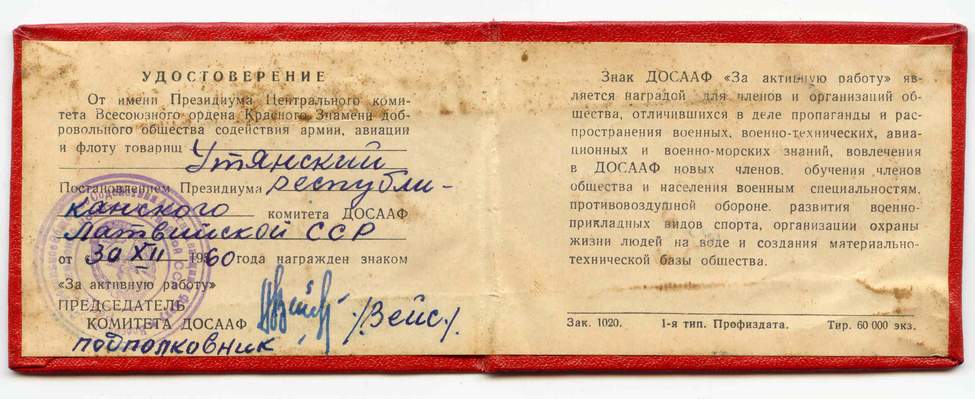 УДОСТОВЕРЕНИЕ
От имени Президиума Центрального коми-
тета Всесоюзного ордена Красного Знамени доб-
ровольного общества содействия армии, авиации
и флоту товарищ Утянский
Постановлением Президиума республи-
канского комитета ДОСААФ
Латвийской ССР
от 30 XII 1960 года награжден знаком
«За активную работу»
ПРЕДСЕДАТЕЛЬ
КОМИТЕТА ДОСААФ /Вейс/
подполковник
Знак ДОСААФ «За активную работу» яв-
ляется наградой для членов и организаций об-
щества, отличившихся в деле пропаганды и рас-
пространения военных, военно-технических, авиа-
ционных и военно-морских знаний, вовлечения
в ДОСААФ новых членов, обучения членов
общества и населения военным специальностям,
противовоздушной обороне, развития военно-
прикладных видов спорта, организации охраны
жизни людей на воде и создания материально-
технической базы общества.
Зак. 1020. 1-я тип. Профиздата. Тир. 60 000 экз.